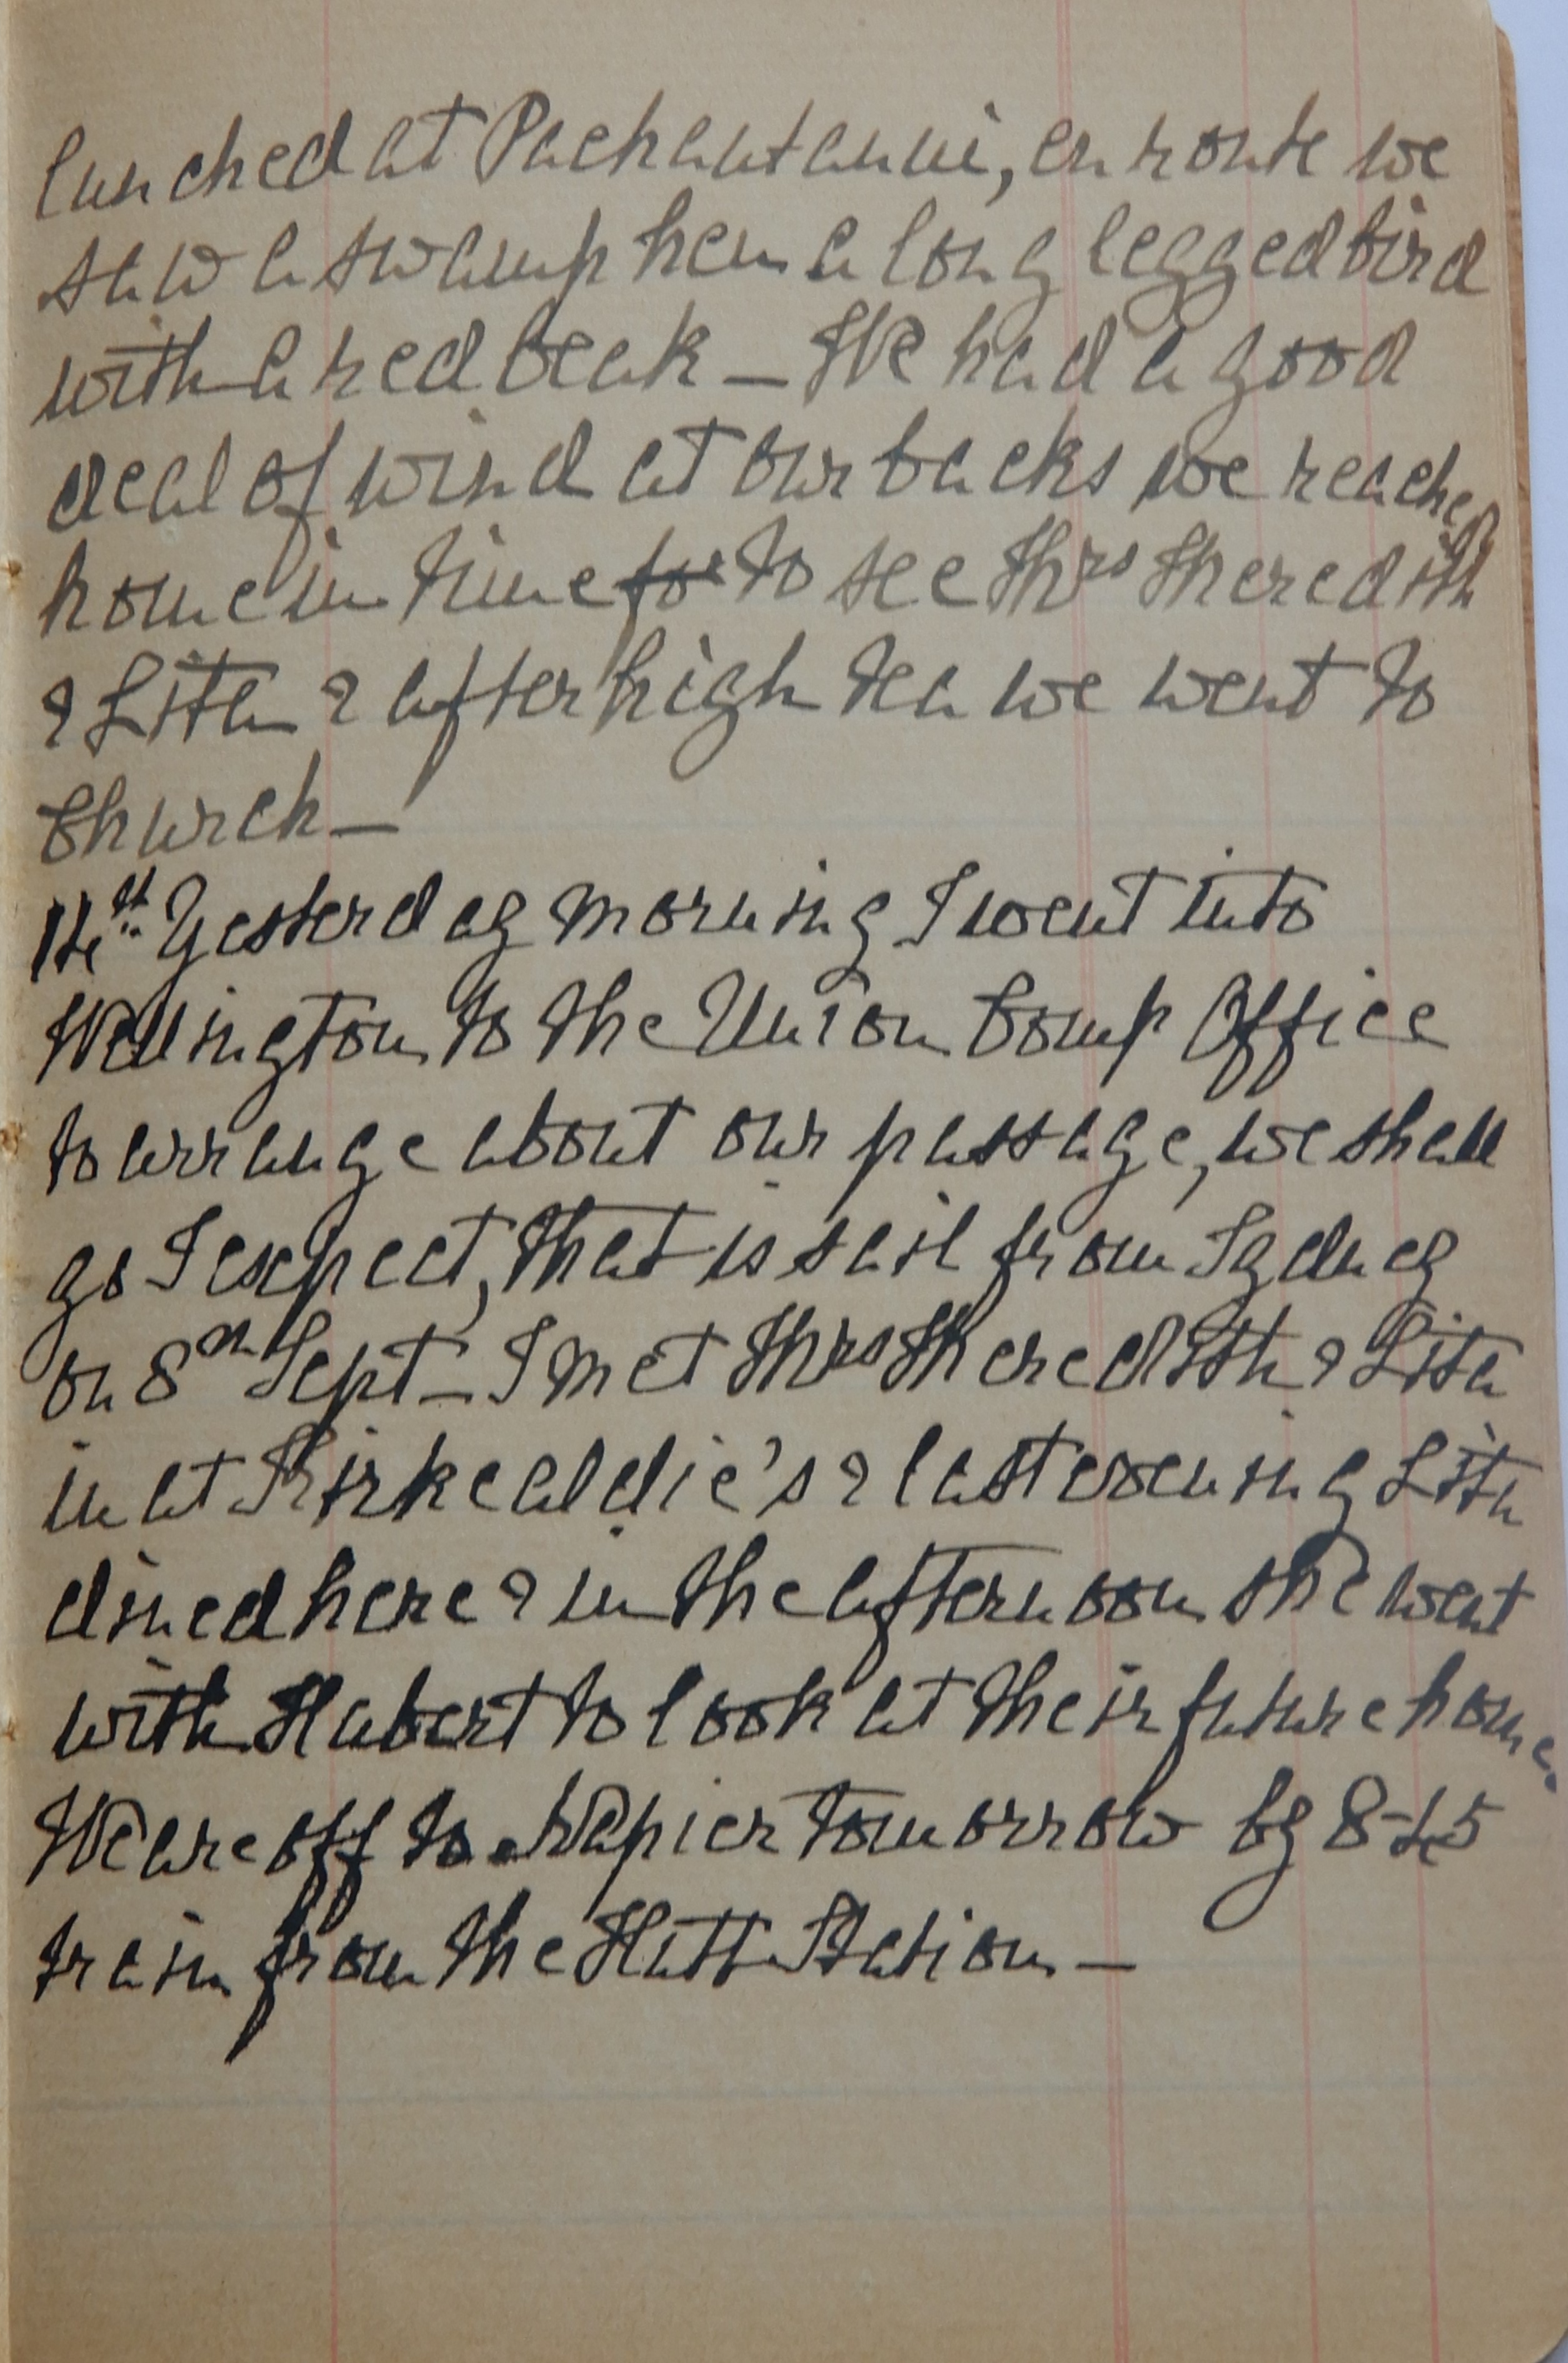 lunched at Packautanui, en route we
saw a swamp hen a long legged bird
with a red beak – We had a good
deal of wind at our backs we reached
home in time for to see Mrs Meredith
& Lita & after high tea we went to
Church –
Yesterday morning I went into
Wellington to the Union Comp Office
to arrange about our passage, we shall
go I expect, that is sail from Sydney
on 8th Sept – I met Mrs Meredith & Lita
in at Kirkcaldie's & last evening Lita
dined here & in the afternoon she went
with Hubert to look at their future home.
We are off to Napier tomorrow by 8-45
train from the Hutt Station –